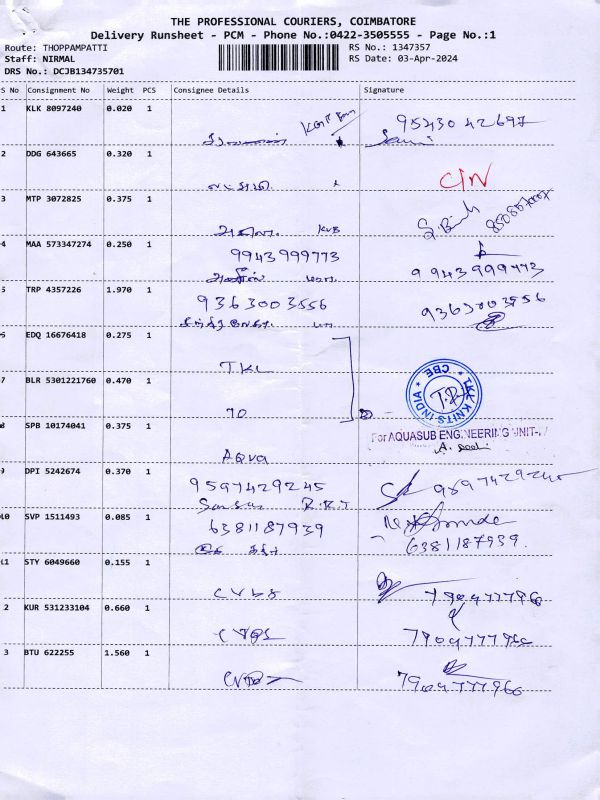 THE PROFESSIONAL COURIERS, COIMBATORE
Delivery Runsheet - PCM - Phone No.:0422-3505555 - Page No.:1
Route: THOPPAMPATTI RS No.: 1347357
Staff: NIRMAL RS Date: 03-Apr-2024
DRS No.: DCJB134735701
S No Consignment No Weight PCS Consignee Details Signature
1 KLK 8097240 0.020 1
9543042697
2 DDG 643665 0.320 1
C/N
3 MTP 3072825 0.375 1
KVB
4 MAA 573347274 0.250 1 9943999773 9943999773
5 TRP 4357226 1.970 1 9363003556 9363003556
6 EDQ 16676418 0.275 1
TKL
7 BLR 5301221760 0.470 1
TKL KNITS INDIA * CBE *
70
8 SPB 10174041 0.375 1 For AQUASUB ENGINEERING UNIT-
Aqua
9 DPI 5242674 0.370 1 9597429245
10 SVP 1511493 0.085 1 6381187939 6381187939.
11 STY 6049660 0.155 1
7904777966
2 KUR 531233104 0.660 1
7904777966
3 BTU 622255 1.560 1
7904777966